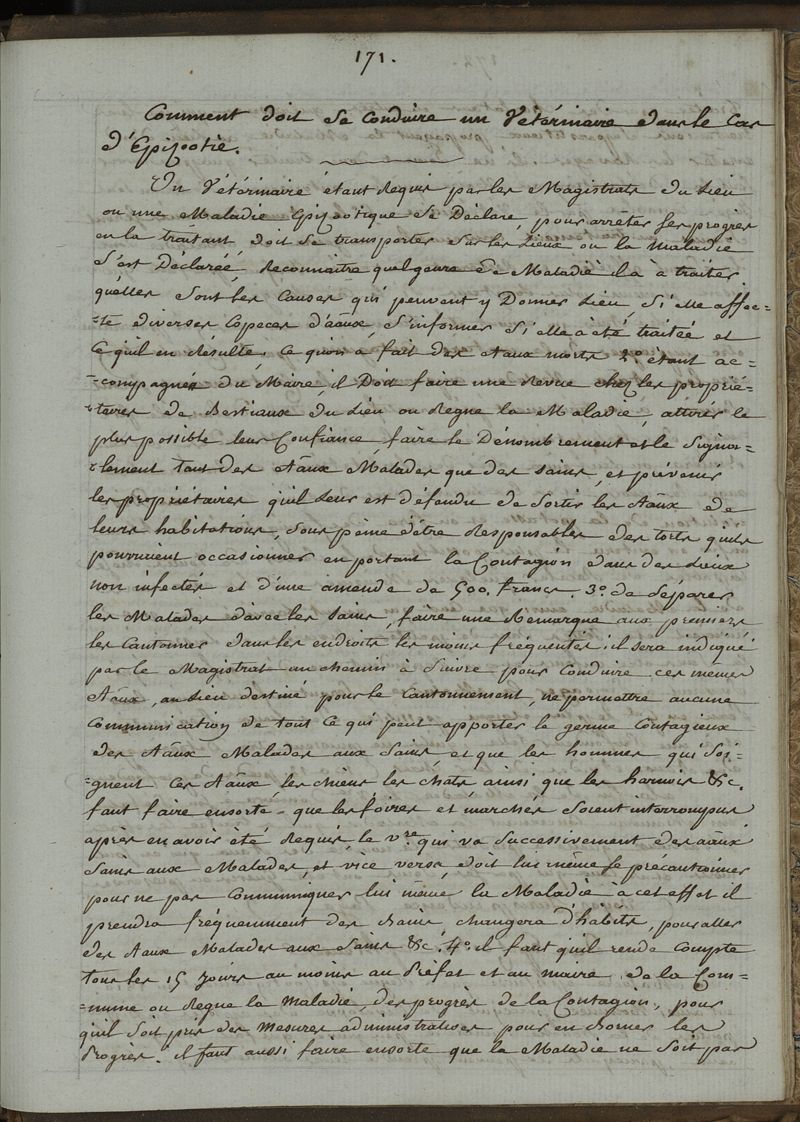 171.
Comment doit se Conduire un Vétérinaire dans le Cas
d'Epizootie.
Un Vétérinaire étant Requis par les Magistrats du Lieu
ou une Maladie Epizootique se Déclare, pour arrêter ses progrès
en la traitant, doit se transporter sur les Lieux où la Maladie
s'est Déclarée, Reconnaitre quel genre de Maladie il a à traiter.
quelles sont les Causes qui peuvent y Donner Lieu, Si elle affec=
=te diverses Especes d'aâux, S'informer Si elle a été traitée et
Ce quil en Résulte, Ce qu'on a fait des Aaux morts 2.º étant ac=
=compagné du Maire, il Doit faire une Revue chez les proprié=
=taires de Bestiaux du Lieu ou Regne la Maladie, attirer le
plus possible leur Confiance faire le Dénombrement et le Signa=
=lement tant des Aâux Malades que des Sains, et prévenir
les propriétaires quil Leur est défendu de Sortir les Aâux de
leurs habitations, sous peine d'être Responsables des torts quils
pourroient occasionner en portant la Contagion dans des Lieux
non infectés et d'une amende de 500. francs. 3.º de Séparer
les Malades d'avec les Sains, faire une Remarque aux premiers
les Cantonner dans les endroits les moins fréquentés; il sera indiqué
par le Magistrat un chemin à Suivre pour Conduire ces memes
Aâux, au Lieu destiné pour le Cantonnement, ne permettre aucune
Communication de tout Ce qui peut apporter le germe Contagieux
des Aâux Malades aux Sains, et que les hommes qui Soi=
=gnent Ces Aâux, les chiens, les chats, ainsi que les harnois &c.
faut faire ensorte que les foires et marchés Soient interrompus
après en avoir été Requis, le v.re qui va Successivement des aâux
Sains aux Malades, et vice versa, doit lui même se précautionner
pour ne pas Communiquer lui même la Maladie à cet effet il
prendra fréquemment des Bains, changera d'habits, pour aller
des Aaux Malades aux Sains &c. 4.º il faut qu'il rende Compte
tous les 15 Jours au moins au Préfet et au maire de la Com=
=mune ou Regne la Maladie, des progrès de la Contagion, pour
quil Soit pris des Mesures administratives pour en Borner les
Progrès. il faut aussi faire ensorte que la Maladie ne Soit pas